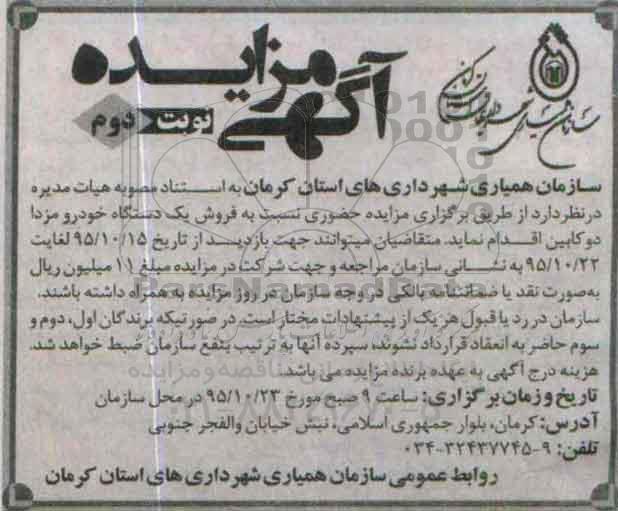 آگهی مزایده
نوبت دوم
سازمان همیاری شهرداری های استان کرمان به استناد مصوبه هیات مدیره
درنظر دارد از طریق برگزاری مزایده حضوری نسبت به فروش یک دستگاه خودرو مزدا
دوکابین اقدام نماید. متقاضیان میتوانند جهت بازدید از تاریخ ۹۵/۱۰/۱۵ لغایت
۹۵/۱۰/۲۲ به نشانی سازمان مراجعه و جهت شرکت در مزایده مبلغ ۱۱ میلیون ریال
به‌صورت نقد یا ضمانتنامه بانکی در وجه سازمان در روز مزایده به همراه داشته باشند.
سازمان در رد یا قبول هر یک از پیشنهادات مختار است. در صورتیکه برندگان اول، دوم و
سوم حاضر به انعقاد قرارداد نشوند، سپرده آنها به ترتیب بنفع سازمان ضبط خواهد شد.
هزینه درج آگهی به عهده برنده مزایده می باشد.
تاریخ و زمان برگزاری: ساعت ۹ صبح مورخ ۹۵/۱۰/۲۳ در محل سازمان
آدرس: کرمان، بلوار جمهوری اسلامی، نبش خیابان والفجر جنوبی
تلفن: ۹-۳۲۴۳۷۷۴۵-۰۳۴
روابط عمومی سازمان همیاری شهرداری های استان کرمان